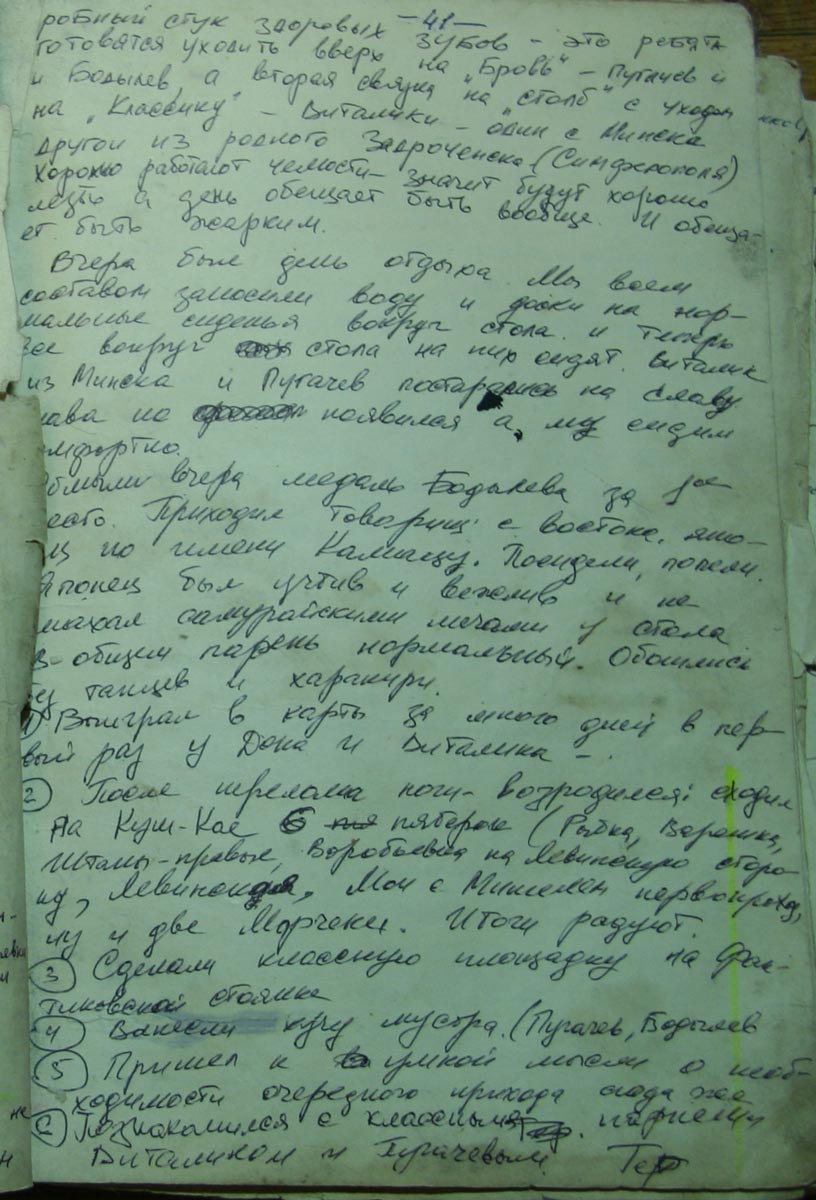 — 41 —
робный стук здоровых зубов – это ребята
готовятся уходить вверх на „Бровь“ – Пугачев и
и Бодылев, а вторая связка на „столб“ с уходом
на „Классику“ – Виталики – один с Минска
другой из родного Задроченска (Симферополя)
хорошо работают челюсти – значит будут хорошо
лезть а день обещает быть вообще. И обеща-
ет быть жарким.
Вчера был день отдыха. Мы всем
составом заносили воду и доски на нор-
мальные сиденья вокруг стола. и теперь
все вокруг стола на них сидят. Виталик
из Минска и Пугачев постарались на славу
лава но появилась а, мы сидим
мфортно.
бмыли вчера медаль Бодылева за 1ое
есто. Приходил товарищ с востока, япо-
ец по имени Камацу. Посидели, попели.
Японец был учтив и вежлив и не
махал самурайскими мечами у стола
в общем парень нормальный. Обошлись
без танцев и харакири.
1) Выиграл в карты за много дней в пер-
вый раз у Дока и Виталика –.
2 После перелома ноги – возродился: сходил
на Куш-Кае пятерок (Рыбка, Варежка,
Штаны-правые, Воробьевка на Левинскую сторо-
ну, Левинской, Мои с Мишелем первопроход,
лу и две Морчеки. Итоги радуют.
3 Сделали классную площадку на Фан-
тиковской стоянке
4 Вынесли кучу мусора. (Пугачев, Бодылев
5 Пришел к умной мысли о необ-
ходимости очередного прихода сюда же
6 Познакомился с классными парнями
Виталиком и Пугачевым